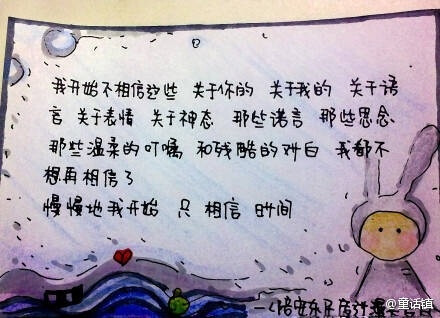 我开始不相信这些 关于你的 关于我的 关于语
言 关于表情 关于神态 那些诺言 那些思念
那些温柔的叮嘱 和残酷的对白 我都不
想再相信了
慢慢地我开始 只 相信 时间
@童话镇